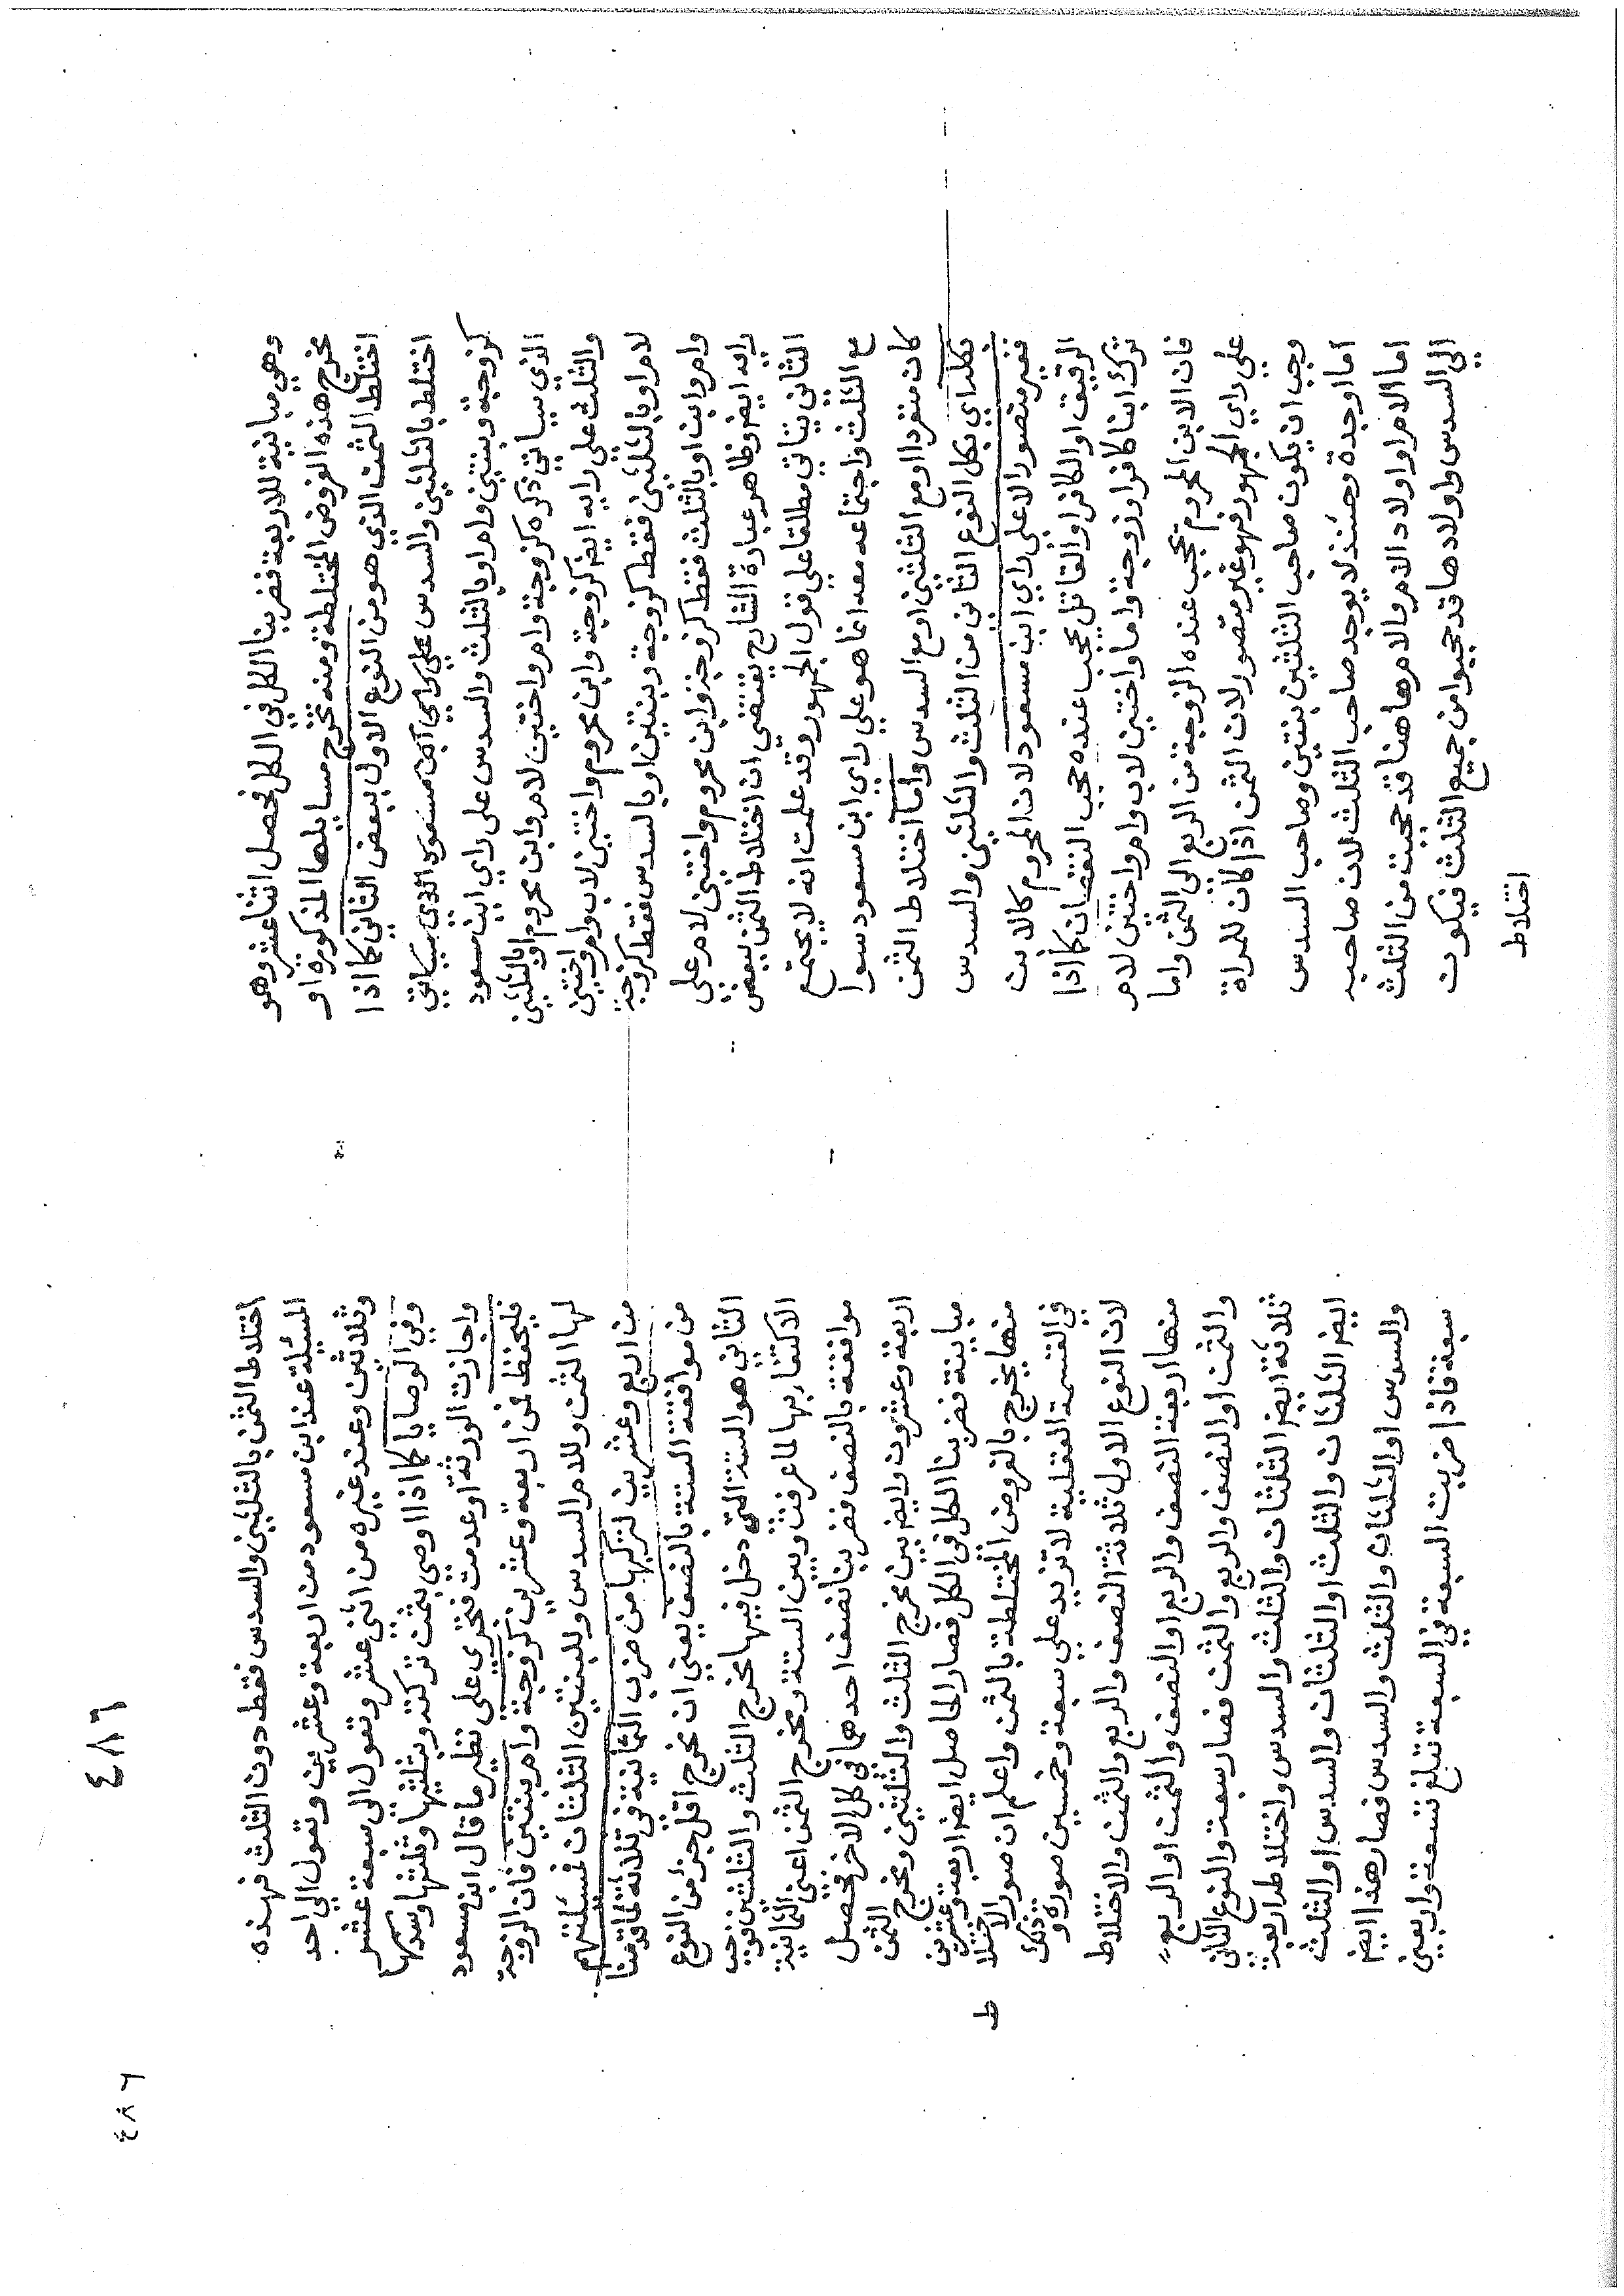 وهي مباينة للاربعة فضربنا الكل في الكل فحصل اثنا عشر وهو
مخرج هذه الفروض المختلطة ومنه تخرج مسايلها المذكورة او
اختلط الثمن الذي هو من النوع الاول ببعض الثاني كما اذا
اختلط بالثلثين والسدس على راي ابن مسعود الذي سياتي
كزوجة وبنتين وام او بالثلث والسدس على راي ابن مسعود
الذي سياتي ذكره كزوجة وام واختين لام وابن محروم او بالثلثين
والثلث على رايه ايضا كزوجة وابن محروم واختين لاب وام واختين
لام او بالثلثين فقط كزوجة وبنتين او بالسدس فقط كزوجة
وام وابن او بالثلث فقط كزوجة وابن محروم واختين لام على
رايه ايضا وظاهر عبارة الشارح يقتضي ان اختلاط الثمن ببعض
الثاني يتاتي مطلقا على قول الجمهور وقد علمت انه لا يجتمع
مع الثلث واجتماعه معه انما هو على راي ابن مسعود سوا
كان منفردا او مع الثلثين او مع السدس واما اختلاط الثمن
بكله اي بكل النوع الثاني من الثلث والثلثين والسدس
فغير متصور الا على راي ابن مسعود لان المحروم كالابن
الرقيق او الكافر او القاتل يحجب عنده حجب النقصان كما اذا
ترك ابنا كافرا وزوجة واما واختين لاب وام واختين لام
فان الابن المحروم يحجب عنده الزوجة من الربع الى الثمن واما
على راي الجمهور فهو غير متصور لان الثمن اذا كان للمراة
وجب ان يكون صاحب الثلثين بنتين وصاحب السدس
اما او جدة وحينئذ لا يوجد صاحب الثلث لان صاحبه
اما الام او اولاد الام والام هاهنا قد حجبت من الثلث
الى السدس واولادها قد حجبوا من جميع الثلث فيكون
اختلاط
٤٨٦
اختلاط الثمن بالثلثين والسدس فقط دون الثلث فهذه
المسيلة عند ابن مسعود من اربعة وعشرين وتعول الى احد
وثلاثين وعند غيره من اثني عشر وتعول الى سبعة عشر
وفي الوصايا كما اذا اوصى بثمن تركته وبثلثيها وثلثها وسدسها
واجازت الورثة او عدمت فتجزى على نظير ما قال ابن مسعود
فليحفظ فمن اربعة وعشرين كزوجة وام وبنتين فان الزوجة
لها الثمن وللام السدس وللبنتين الثلثان فمسئلتهم
من اربع وعشرين لتركبها من ضرب الثمانية في ثلاثة لما قدمنا
من موافقة الستة بالنصف يعني ان مخرج اقل جزء من النوع
الثاني هو الستة التي دخل فيها مخرج الثلث والثلثين فوجب
الاكتفا بها لما عرفت وبين الستة ومخرج الثمن اعني الثمانية
موافقة بالنصف فضربنا نصف احدهما في كل الاخر فحصل
اربعة وعشرون وايضا بين مخرج الثلث والثلثين ومخرج الثمن
مباينة فضربنا الكل في الكل فصار الحاصل ايضا اربعة وعشرين
منها يخرج بالفروض المختلطة بالثمن واعلم ان صور الاختلاط
في القسمة العقلية لا تزيد على سبعة وخمسين صورة وذلك
لان النوع الاول ثلاثة النصف والربع والثمن والاختلاط
منها اربعة النصف والربع او النصف والثمن او الربع
والثمن او النصف والربع والثمن فصار سبعة والنوع الثاني
ثلاثة ايضا الثلثان والثلث والسدس واختلاطه اربعة
ايضا الثلثان والثلث او الثلثان والسدس او الثلث
والسدس او الثلثان والثلث والسدس فصار هذا ايضا
سبعة فاذا ضربت السبعة في السبعة تبلغ تسعة واربعين
٤٨٦